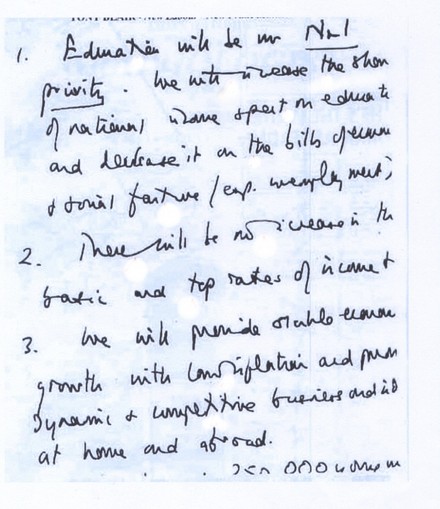 1. Education will be our No1
priority. We will increase the share
of national income spent on educati
and decrease it on the bills of econom
& social failure (esp. unemployment)
2. There will be no increase in th
basic and top rates of income t
3. We will provide stable econom
growth with low inflation and prom
dynamic & competitive business and ind
at home and abroad.
250 000